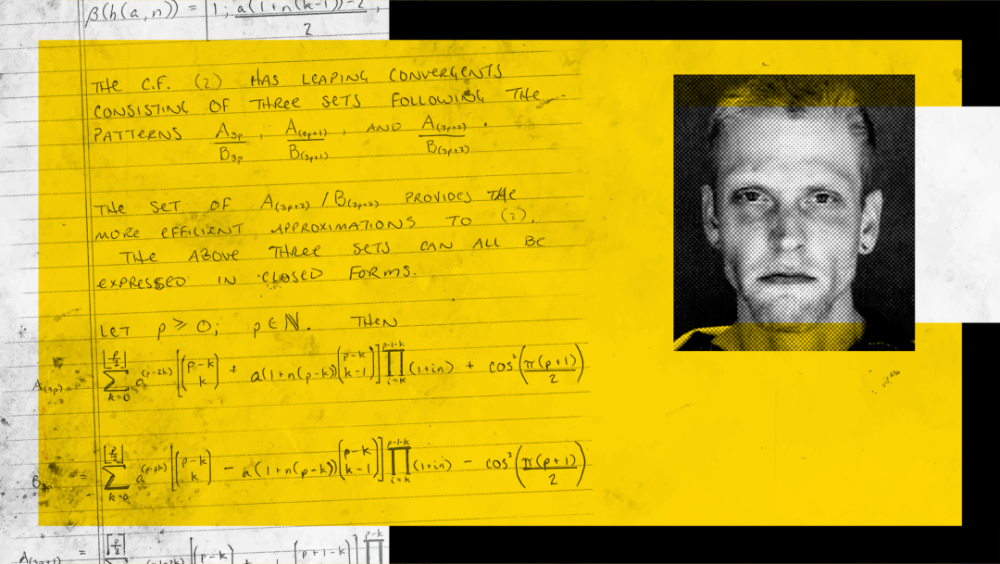 β(h(a,n)) = [1; a(1+n(k-1))-2 / 2,
THE C.F. (2) HAS LEAPING CONVERGENTS
CONSISTING OF THREE SETS FOLLOWING THE
PATTERNS A_{3p}/B_{3p}, A_{(3p+1)}/B_{(3p+1)}, AND A_{(3p+2)}/B_{(3p+2)}.
THE SET OF A_{(3p+2)}/B_{(3p+2)} PROVIDES THE
MORE EFFICIENT APPROXIMATIONS TO (2).
THE ABOVE THREE SETS CAN ALL BE
EXPRESSED IN CLOSED FORMS.
LET p ≥ 0; p ∈ ℕ. THEN
A_{(3p)} = ∑_{k=0}^{⌊p/2⌋} a^{(p-2k)} [(p-k choose k) + a(1+n(p-k))(p-k choose k-1)] ∏_{i=k}^{p-1-k} (1+in) + cos²(π(p+1)/2)
B_{3p} = ∑_{k=0}^{⌊p/2⌋} a^{(p-2k)} [(p-k choose k) - a(1+n(p-k))(p-k choose k-1)] ∏_{i=k}^{p-1-k} (1+in) - cos²(π(p+1)/2)
A_{(3p+1)} = [(p-k) + (p+1-k)] ∏^{p-k}